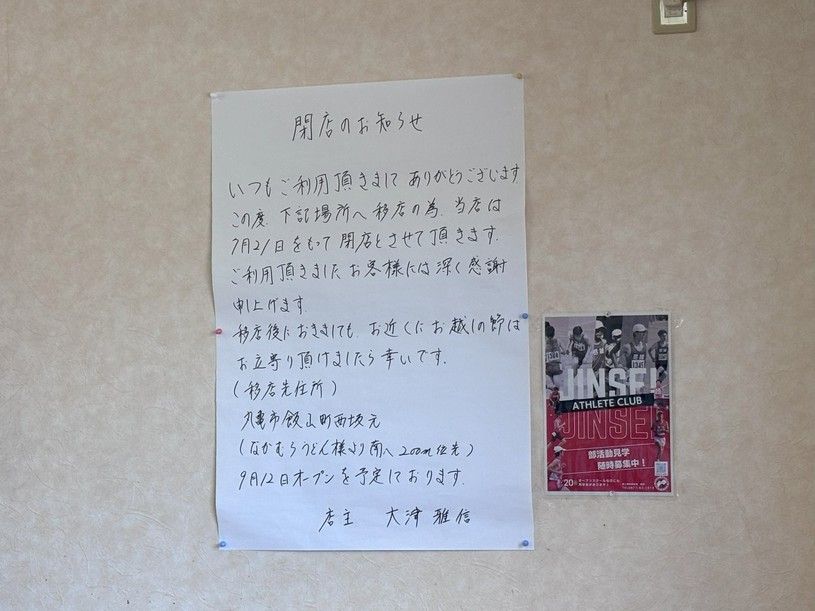 閉店のお知らせ
いつもご利用頂きまして ありがとうございます
この度、下記場所へ移店の為、当店は
7月21日をもって閉店とさせて頂きます。
ご利用頂きましたお客様には深く感謝
申上げます。
移店後におきましても、お近くにお越しの節は
お立寄り頂けましたら幸いです。
(移店先住所)
丸亀市飯山町西坂元
(なかむらうどん様より南へ200m位先)
9月12日オープンを予定しております。
店主 大津 雅信
JINSEI
ATHLETE CLUB
JINSEI
部活動見学
随時募集中!